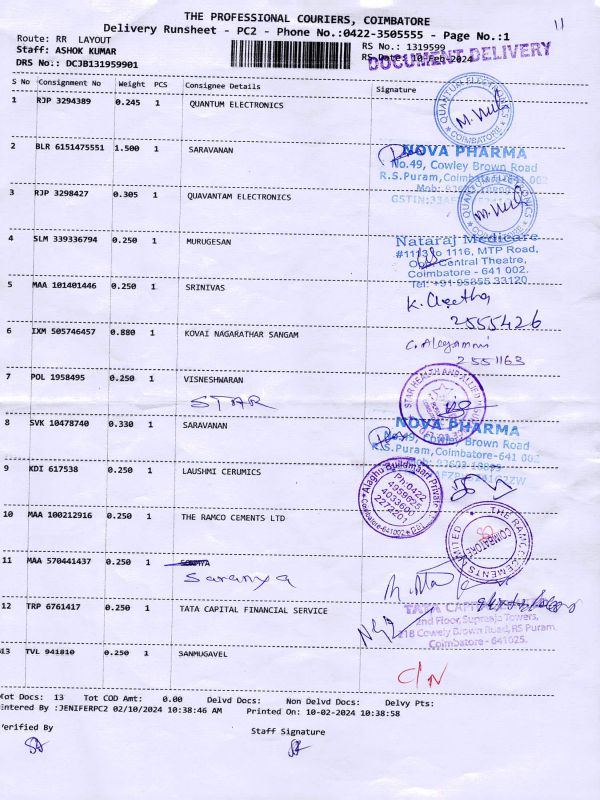 THE PROFESSIONAL COURIERS, COIMBATORE
11
Delivery Runsheet - PC2 - Phone No.:0422-3505555 - Page No.:1
Route: RR LAYOUT
RS No.: 1319599
Staff: ASHOK KUMAR
RS Date: 10-Feb-2024
DOCUMENT DELIVERY
DRS No.: DCJB131959901
S No Consignment No Weight PCS Consignee Details Signature
1 RJP 3294389 0.245 1 QUANTUM ELECTRONICS
QUANTUM ELECTRONICS
COIMBATORE
2 BLR 6151475551 1.500 1 SARAVANAN
NOVA PHARMA
No.49, Cowley Brown Road
R.S.Puram, Coimbatore-641 002
3 RJP 3298427 0.305 1 QUAVANTAM ELECTRONICS
4 SLM 339336794 0.250 1 MURUGESAN
Nataraj Medicare
#1113 to 1116, MTP Road,
Opp. Central Theatre,
Coimbatore - 641 002.
Tel: +91-95855 33120
5 MAA 101401446 0.250 1 SRINIVAS
K. Cheetha
2555426
6 IXM 505746457 0.880 1 KOVAI NAGARATHAR SANGAM
C. Alagammi
2551163
7 POL 1958495 0.250 1 VISNESHWARAN
STAR
STAR HEALTH AND ALLIED
8 SVK 10478740 0.330 1 SARAVANAN
NOVA PHARMA
No.49, Cowley Brown Road
R.S.Puram, Coimbatore-641 002
9 KDI 617538 0.250 1 LAUSHMI CERUMICS
Alaghu Buildmaart Private
Ph:0422
4959625,
4033690
2272201
Coimbatore-641002
10 MAA 100212916 0.250 1 THE RAMCO CEMENTS LTD
THE RAMCO CEMENTS LIMITED
COIMBATORE
11 MAA 570441437 0.250 1
Saranya
12 TRP 6761417 0.250 1 TATA CAPITAL FINANCIAL SERVICE
TATA
2nd Floor, Supreaja Towers,
218 Cowely Brown Road, RS Puram,
Coimbatore - 641025.
13 TVL 941810 0.250 1 SANMUGAVEL
C/N
Tot Docs: 13 Tot COD Amt: 0.00 Delvd Docs: Non Delvd Docs: Delvy Pts:
Entered By :JENIFERPC2 02/10/2024 10:38:46 AM Printed On: 10-02-2024 10:38:58
Verified By
Staff Signature